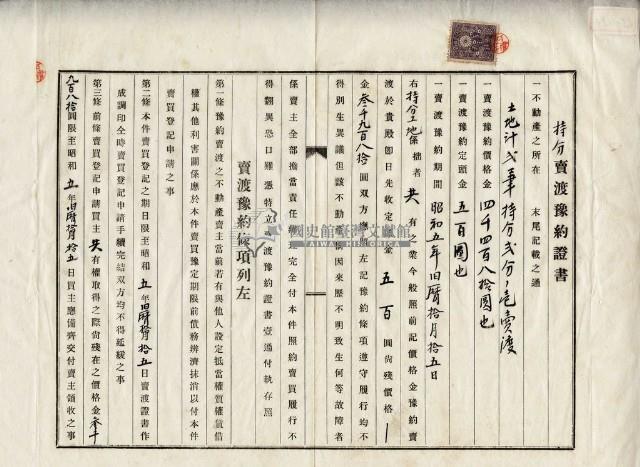 持分賣渡豫約證書
一不動產之所在　末尾記載之通
土地計弍筆持分弍分ノ壱賣渡
一賣渡豫約價格金　四千四百八拾圓也
一賣渡豫約定頭金　五百圓也
一賣渡豫約期間　昭和五年旧曆拾月拾五日
右持分土地係拙者共有之業今般照前記價格金豫約賣
渡於貴殿即日先收定頭金五百圓尚殘價格
金叁千九百八拾圓双方左記豫約條項遵守履行均不
得別生異議但該不動來歷不明致生何等故障者
係賣主全部擔當責任完全付本件照約賣買履行不
得翻異恐口難憑特立賣渡豫約證書壹通付執存照
賣渡豫約條項列左
第一條豫約賣渡之不動產賣主當前若有與他人設定抵當權質權賃借
權其他利害關係應於本件賣買豫定期限前債務辨濟抹消以付本件
賣買登記申請之事
第二條本件賣買登記之期日限至昭和五年旧曆拾月拾五日賣渡證書作
成調印仝時賣買登記申請手續完結双方均不得延緩之事
第三條前條賣買登記申請買主共有權取得之際尚殘在之價格金叁千
九百八拾圓限至昭和五年旧曆拾月拾五日買主應備齊交付賣主領收之事
國史館臺灣文獻館
TAIWAN HISTORICA